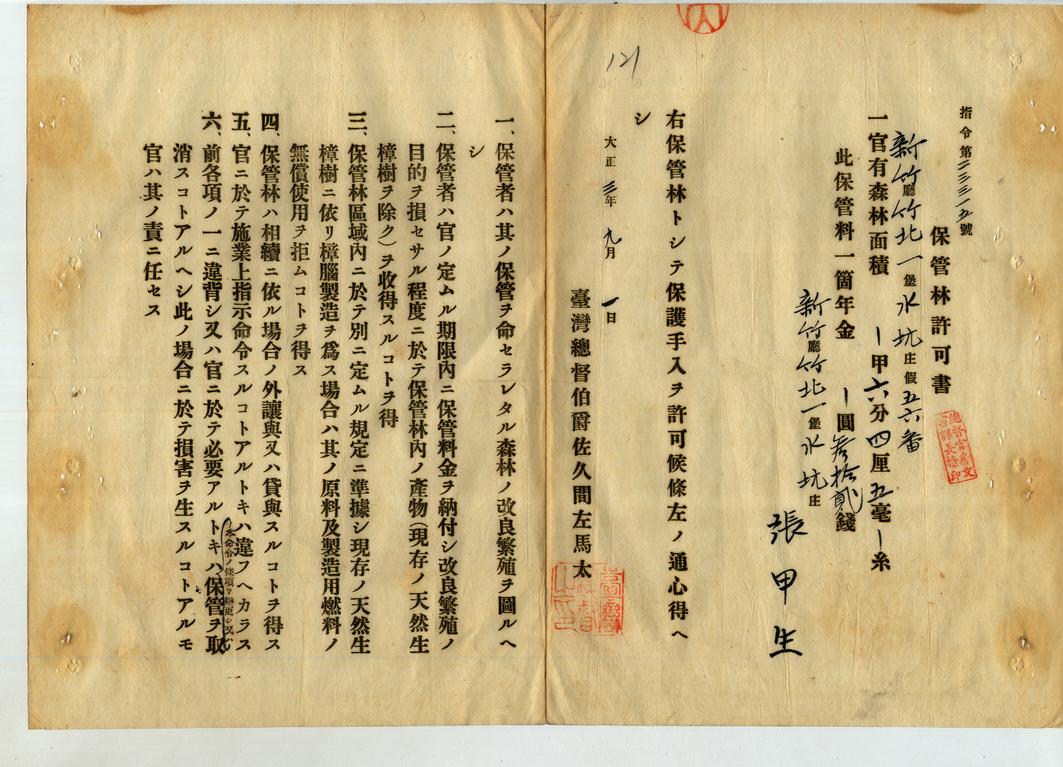 指令第三三三一五號
保管林許可書
新竹廳竹北一堡水坑庄假五六番
一官有森林面積 一甲六分四厘五毫一糸
此保管料一箇年金 一圓參拾貳錢
新竹廳竹北一堡水坑庄
張甲生
右保管林トシテ保護手入ヲ許可候條左ノ通心得ヘ
シ
121
大正三年九月一日
臺灣總督伯爵佐久間左馬太
一、保管者ハ其ノ保管ヲ命セラレタル森林ノ改良繁殖ヲ圖ルヘ
シ
二、保管者ハ官ノ定ムル期限內ニ保管料金ヲ納付シ改良繁殖ノ
目的ヲ損セサル程度ニ於テ保管林內ノ產物(現存ノ天然生
樟樹ヲ除ク)ヲ收得スルコトヲ得
三、保管林區域內ニ於テ別ニ定ムル規定ニ準據シ現存ノ天然生
樟樹ニ依リ樟腦製造ヲ爲ス場合ハ其ノ原料及製造用燃料ノ
無償使用ヲ拒ムコトヲ得ス
四、保管林ハ相續ニ依ル場合ノ外讓與又ハ貸與スルコトヲ得ス
五、官ニ於テ施業上指示命令スルコトアルトキハ違フヘカラス
六、前各項ノ一ニ違背シ又ハ官ニ於テ必要アルトキハ本命令ノ條項ヲ變更シ又ハ保管ヲ取
消スコトアルヘシ此ノ場合ニ於テ損害ヲ生スルコトアルモ
官ハ其ノ責ニ任セス